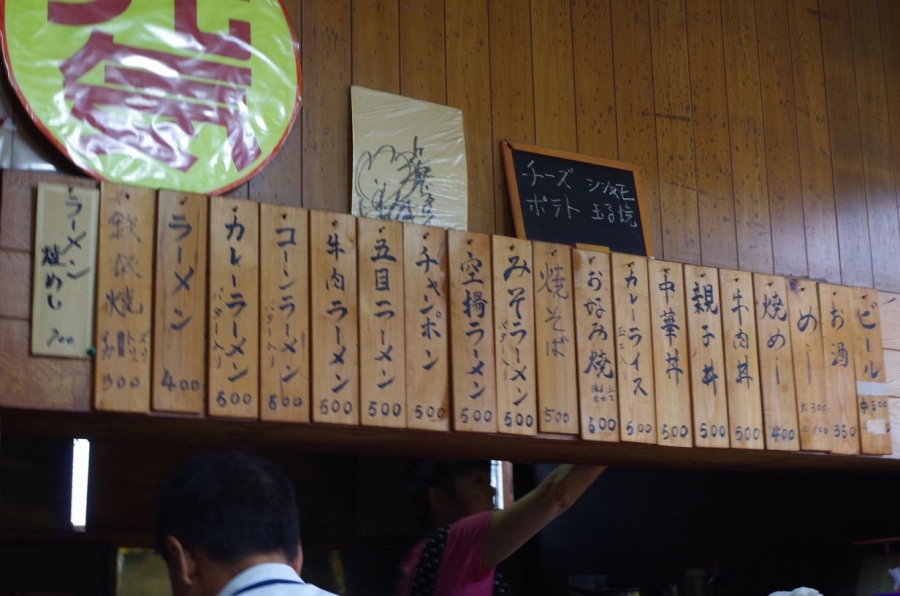 チーズ シソ&モ
ポテト 玉子焼
ラーメン
焼めし
700
ラーメン
400
カレーラーメン
バター入り
600
コーンラーメン
バター入り
600
牛肉ラーメン
500
五目ラーメン
500
チャンポン
500
空揚ラーメン
500
みそラーメン
500
焼そば
500
おなみ焼
600
カレーライス
500
中華丼
500
親子丼
500
牛肉丼
500
焼めー
400
めー
大 300
お酒
350
ビール
中500